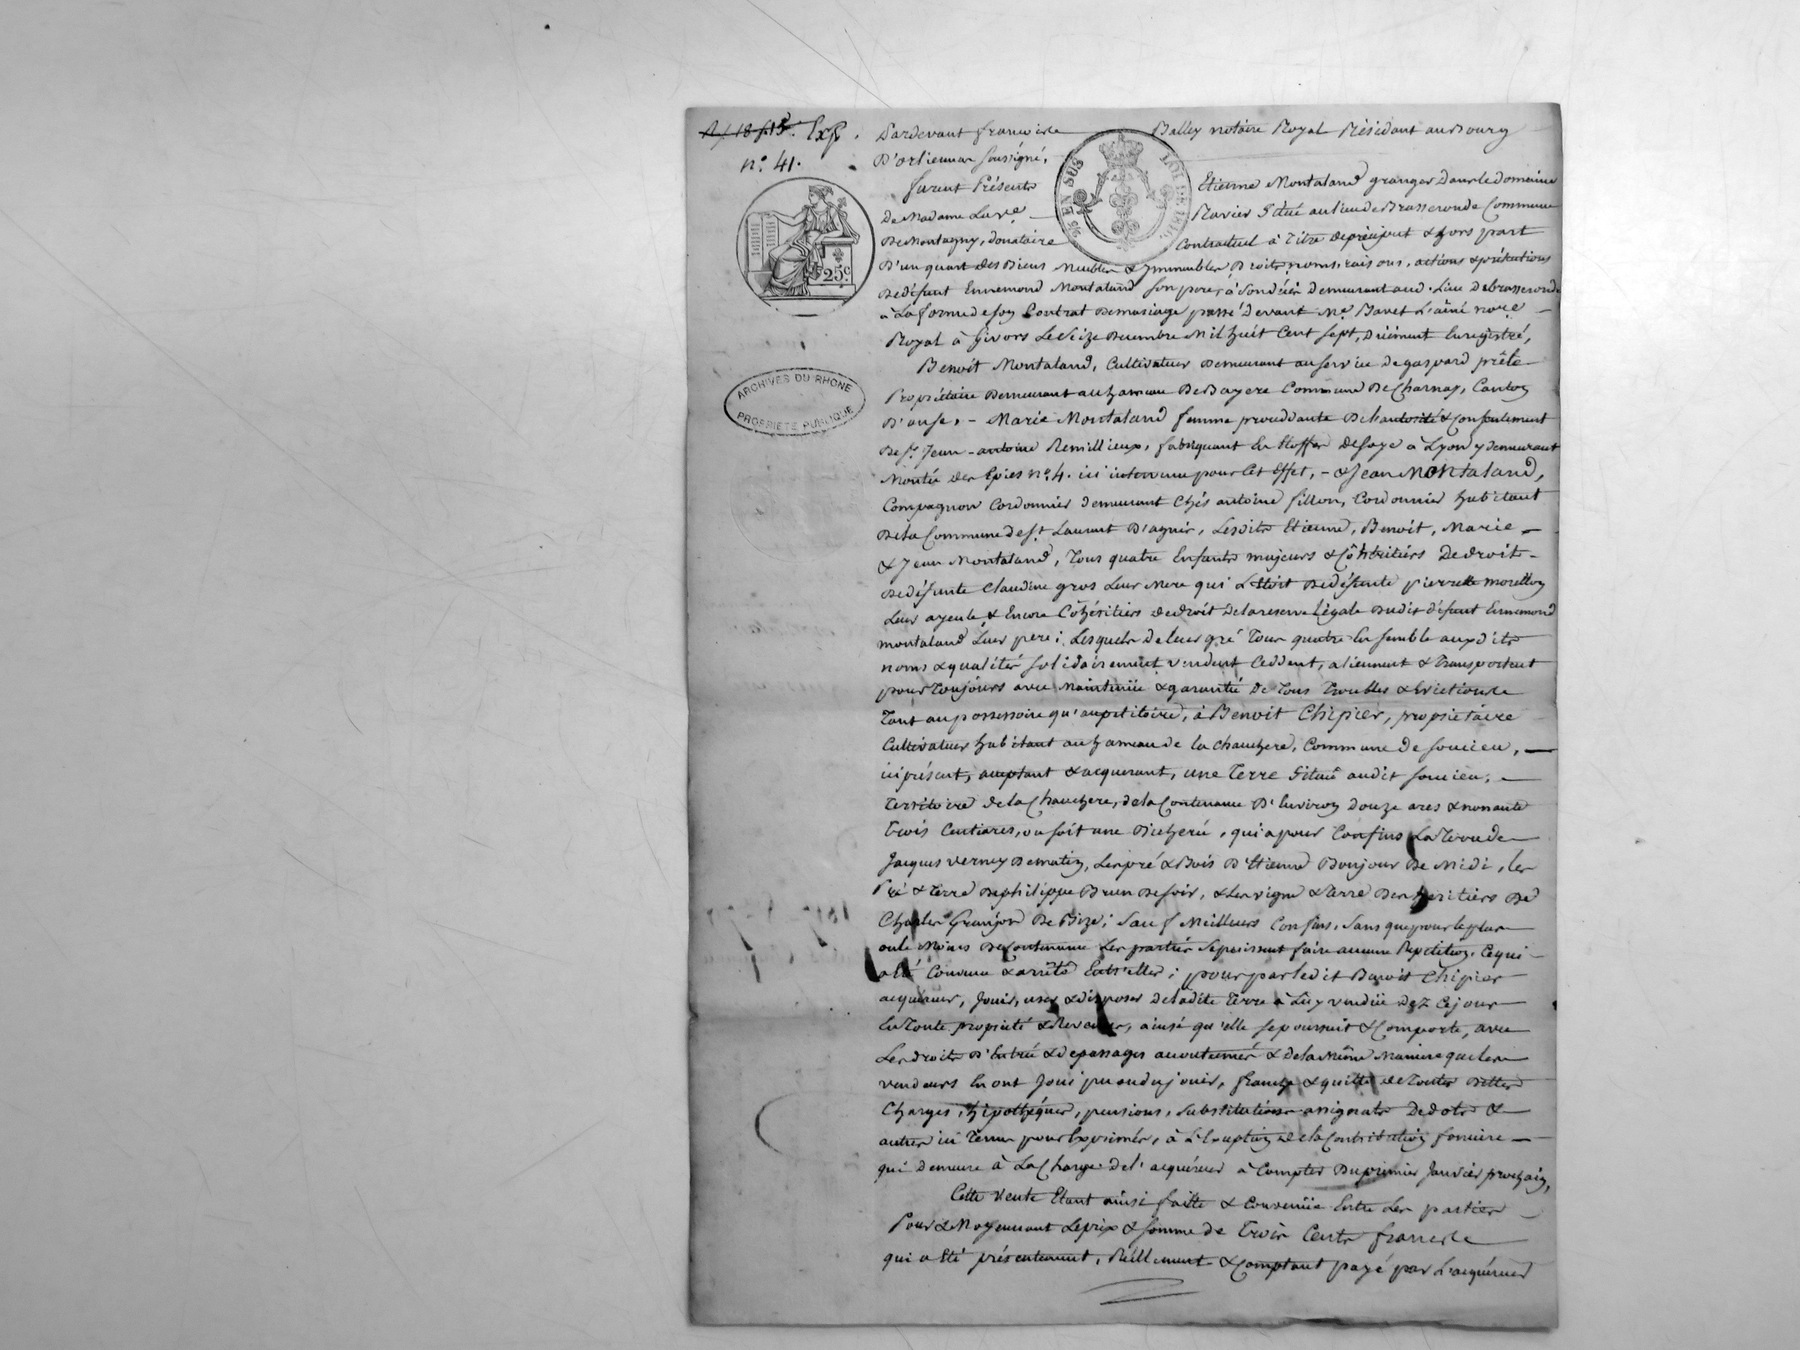 Exp.
n.° 41.
25 c
25 EN SUS
LOI DE 1816
ARCHIVES DU RHONE
PROPRIETE PUBLIQUE
Pardevant françois Balley notaire Royal Résidant au Bourg
D'orlienas soussigné,
furent Présents Etienne Montaland granger dans le domaine
De Madame Luve Ravier Situé au lieu de Brasseronde Commune
De Montagny, donataire Contractuel à titre de préciput & hors part
D'un quart des Biens Meubles & Immeubles, Droits, noms, raisons, actions & prétentions
De défunt Ennemond Montaland son pere, à son décès demeurant aud. Lieu De brasseronde
à La forme de son Contrat De mariage passé Devant Me. Bavet L'aîné nore
Royal à Givors Le Seize Decembre Mil huit Cent Sept, Duëment Enregistré,
Benoit Montaland, Cultivateur Demeurant au service de gaspard prête
Propriétaire Demeurant au hameau De Bayere Commune De Charnay, Canton
D'anse, - Marie Montaland femme procédante De L'autorité & Consentement
De Sr. Jean-antoine Remillieux, fabriquant En Etoffes de soye à Lyon y demeurant
Montée des Epies n.° 4. ici intervenu pour Cet Effet, - & Jean Montaland,
Compagnon Cordonnier demeurant Chés antoine fillon, Cordonnier habitant
De la Commune de St. Laurent D'agnis, Lesdits Etienne, Benoit, Marie
& Jean Montaland, tous quatre Enfants majeurs & Cohéritiers De droit
De défunte Claudine gros Leur Mere qui L'Etoit De défunte pierrette morellon
Leur ayeule, & Encore Cohéritiers de droit De la reserve Légale Dudit défunt Ennemond
montaland Leur pere; Lesquels de leur gré tous quatre Ensemble auxdits
noms & qualités solidairement vendent Ceddent, alienent & transportent
pour toujours avec Maintenüe & garantie De tous troubles & Evictions
tant au possessoire qu'au petitoire, à Benoit Chipier, propriétaire
Cultivateur habitant au hameau de la chauchere, Commune de soucieu,
ici présent, acceptant & acquerant, une terre Située audit soucieu,
territoire de la Chauchere, de la Contenance D'Environ douze ares & nonante
trois Centiares, ou soit une Bicherée, qui a pour Confins La terre de
Jacques verney De matin, Les pré & Bois D'Etienne Bonjour De Midi, les
Pré & terre De philippe Brun De soir, & Les vigne & terre Des heritiers De
Charles Granjon De Bize; Sauf Meilleurs Confins, Sans que pour le plus
ou le Moins De Contenance Les parties se puissent faire aucune Repetition, Ce qui
a été Convenu & arrêté Entr'elles; pour par ledit Benoit Chipier
acquereur, Jouir, user & disposer De ladite terre à Luy vendüe Dez Ce jour
En toute proprieté & Revenus, ainsi qu'elle se poursuit & Comporte, avec
Les droits D'Entrée & de passages accoutumés & de la Même Maniere que les
vendeurs En ont Joui pu ou du jouir, franche & quitte de toutes Dettes
Charges, hipothéques, pensions, substitutions assignats De dots &
autres ici tenus pour Exprimés, à L'Exception de la Contribution fonciere
qui demeure à La Charge de l'acquéreur à Compter Du premier Janvier prochain,
Cette vente Etant ainsi faitte & Convenüe Entre Les parties
Pour & Moyennant Le prix & somme de trois Cents francs
qui a été présentement, Réellement & Comptant payé par L'acquéreur